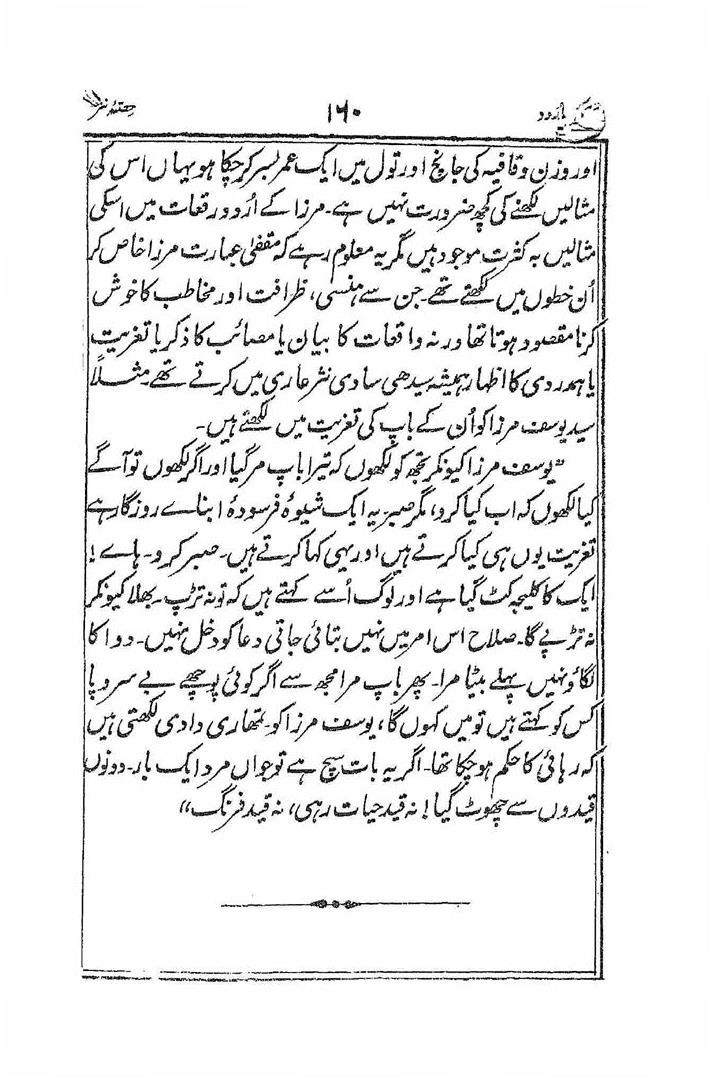 اردو ۱۶۰ حصّہ نثر
اور وزن و قافیہ کی جانچ اور تول میں ایک عمر بسر کر چکا ہو یہاں اس کی
مثالیں لکھنے کی کچھ ضرورت نہیں ہے۔ مرزا کے اُردو رقعات میں اسکی
مثالیں بہ کثرت موجود ہیں مگر یہ معلوم رہے کہ مقفیٰ عبارت مرزا خاص کر
اُن خطوں میں لکھتے تھے۔ جن سے ہنسی، ظرافت اور مخاطب کا خوش
کرنا مقصود ہوتا تھا ورنہ واقعات کا بیان یا مصائب کا ذکر یا تعزیت
یا ہمدردی کا اظہار ہمیشہ سیدھی سادی نثر عاری میں کرتے تھے۔ مثلاً
سید یوسف مرزا کو اُن کے باپ کی تعزیت میں لکھتے ہیں۔
"یوسف مرزا کیونکر تجھ کو لکھوں کہ تیرا باپ مر گیا اور اگر لکھوں تو آگے
کیا لکھوں کہ اب کیا کرو، مگر صبر یہ ایک شیوۂ فرسودۂ ابناے روزگار ہے
تعزیت یوں ہی کیا کرتے ہیں اور یہی کہا کرتے ہیں۔ صبر کرو۔ ہاے!
ایک کا کلیجہ کٹ گیا ہے اور لوگ اُسے کہتے ہیں کہ تو نہ تڑپ۔ بھلا کیونکر
نہ تڑپے گا۔ صلاح اس امر میں نہیں بتائی جاتی دعا کو دخل نہیں۔ دوا کا
لگاؤ نہیں پہلے بیٹا مرا۔ پھر باپ مرا مجھ سے اگر کوئی پوچھے بے سر و پا
کس کو کہتے ہیں تو میں کہوں گا، یوسف مرزا کو۔ تمھاری دادی لکھتی ہیں
کہ رہائی کا حکم ہو چکا تھا۔ اگر یہ بات سچ ہے تو جواں مرد ایک بار۔ دونوں
قیدوں سے چھوٹ گیا! نہ قید حیات رہی، نہ قید فرنگ"